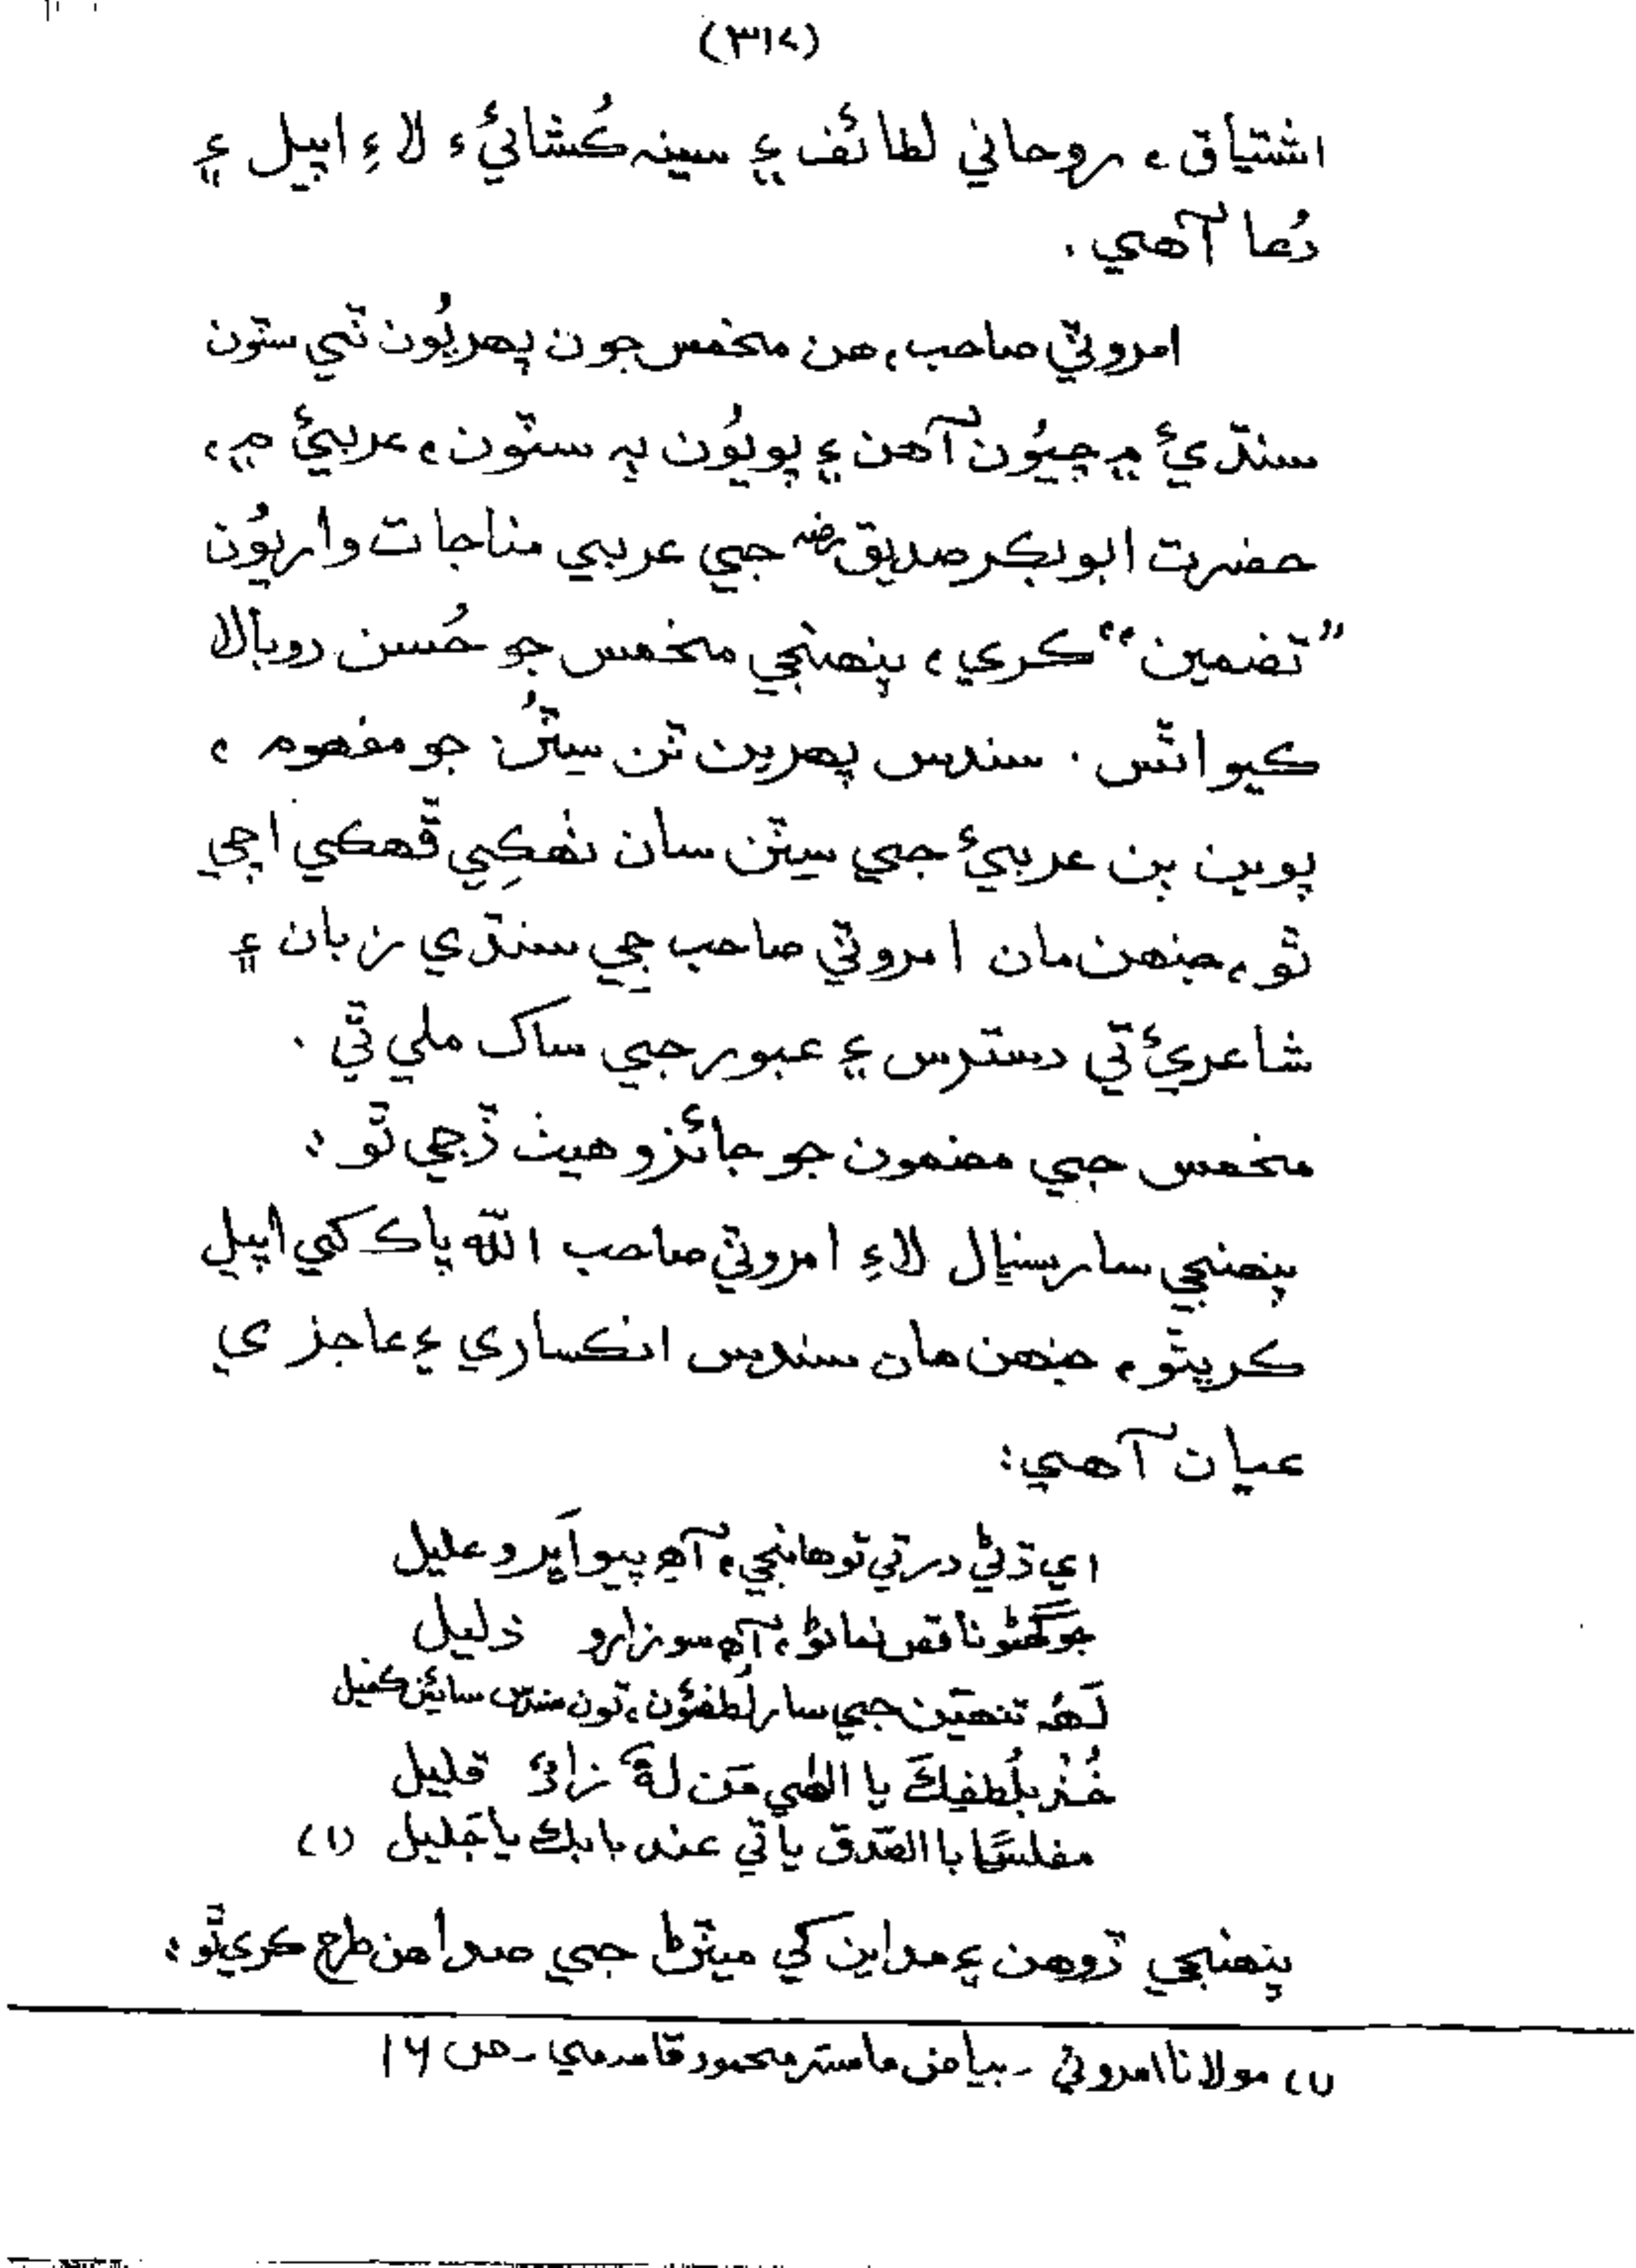 (٣١٤)
اشتياق، روحاني لطائف ۽ سينہ ڪُشائيءَ لاءِ اپيل ۽
دُعا آهي.
امروٽي صاحب، هن مخمس جون پهريُون ٽي سٽون
سنڌيءَ ۾ چيُون آهن ۽ پويُون ٻه سٽون، عربيءَ ۾،
حضرت ابوبڪر صديق رضه جي عربي مناجات واريُون
”تضمين“ ڪري، پنهنجي مخمس جو حُسن دوبالا
ڪيو اٿس. سندس پهرين ٽن سِٽُن جو مفهوم،
پوين ٻن عربيءَ جي سٽن سان ٺهڪِي ٺهڪي اچي
ٿو، جنهن مان امروٽي صاحب جي سنڌي زبان ۽
شاعريءَ تي دسترس ۽ عبور جي ساک ملي ٿي.
مخمس جي مضمون جو جائزو هيٺ ڏجي ٿو:
پنهنجي سار سنڀال لاءِ امروٽي صاحب اللّٰه پاڪ کي اپيل
ڪري ٿو، جنهن مان سندس انڪساري ۽ عاجزي
عيان آهي:
اي ڌڻي در تي توهانجي، آهہ پيو اَٻرو عليل
جو گهڻو ناقص نماڻو، آهہ سو زارو ذليل
لَھُہ تنهين جي سار لُطفئون، تون سندس سائين ڪفيل
خُذ بلُطفِكَ يا الٰهي مَن لهٗ زادٌ قليل
مفلسًا با الصّدق ياتي عند بابك يا جَليل (١)
پنهنجي ڏوهن ۽ مداين کي ميٽڻ جي صدا هن طرح ڪري ٿو:
(١) مولانا امروٽي - بياض ماستر محمود قاسمي - ص ١٦